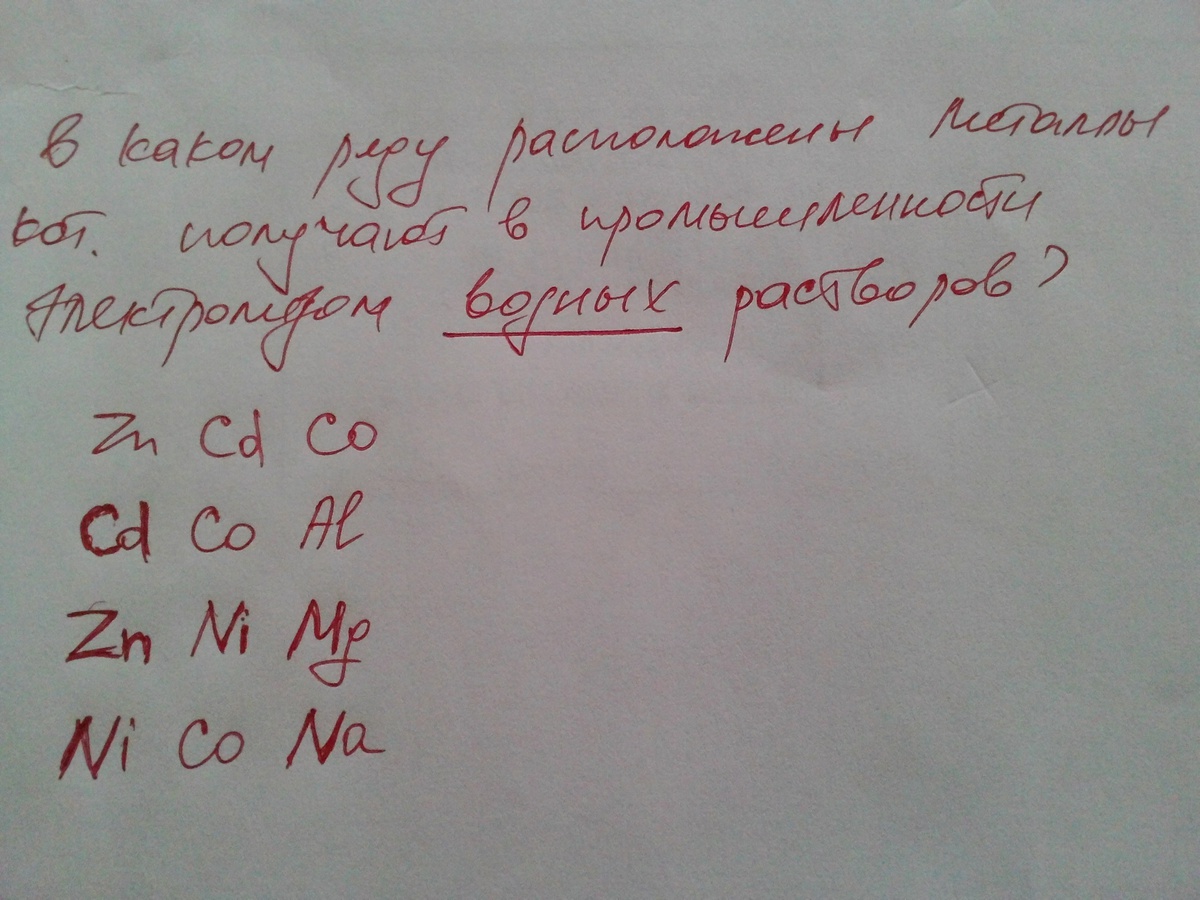 В каком ряду расположены металлы
кот. получают в промышленности
электролизом водных растворов?
Zn Cd Co
Cd Co Al
Zn Ni Mg
Ni Co Na